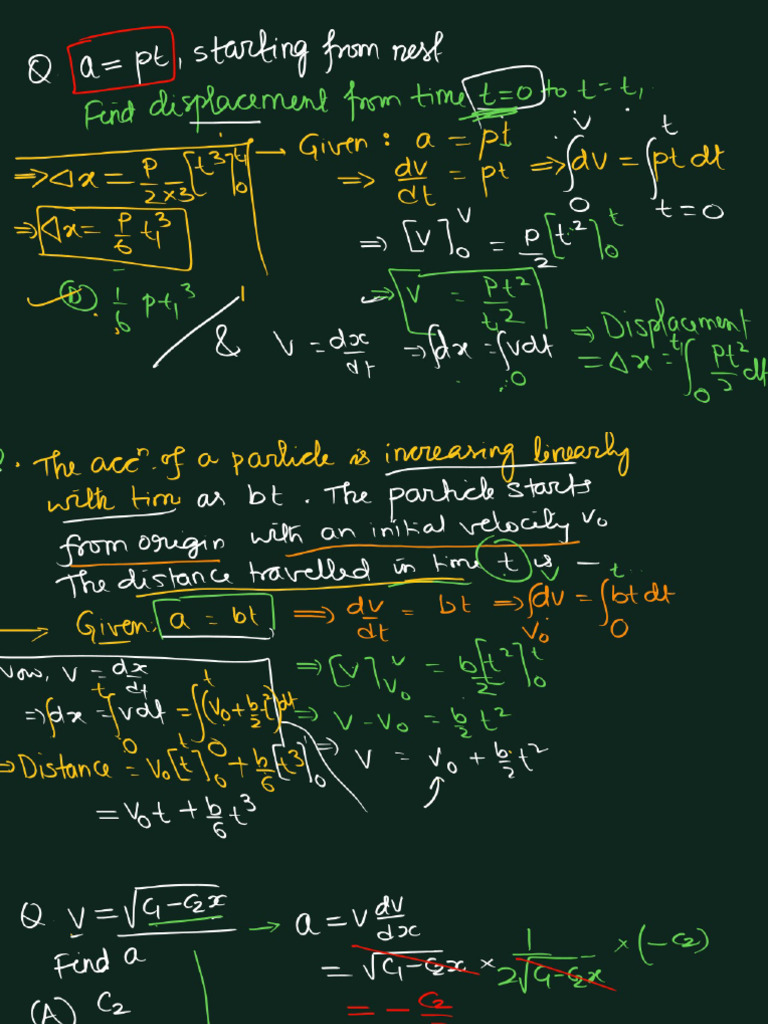 Q. a = pt, starting from rest
Find displacement from time t=0 to t = t₁
→ Given : a = pt
⇒ dv/dt = pt ⇒ ∫₀ᵛ dv = ∫ₜ₌₀ᵗ pt dt
⇒ [v]₀ᵛ = p/2 [t²]₀ᵗ
⇒ v = pt²/2
& v = dx/dt ⇒ ∫dx = ∫₀ vdt ⇒ Displacement
= Δx = ∫₀ᵗ¹ pt²/2 dt
⇒ Δx = p/(2×3) [t³]₀ᵗ¹
⇒ Δx = p/6 t₁³
(D) 1/6 pt₁³
Q. The accⁿ. of a particle is increasing linearly
with tim as bt. The particle starts
from origin with an initial velocity v₀
The distance travelled in time t is —
→ Given: a = bt ⇒ dv/dt = bt ⇒ ∫ᵥ₀ᵛ dv = ∫₀ᵗ bt dt
⇒ [v]ᵥ₀ᵛ = b/2 [t²]₀ᵗ
⇒ v - v₀ = b/2 t²
⇒ v = v₀ + b/2 t²
Now, v = dx/dt
⇒ ∫dx = ∫₀ᵗ vdt = ∫₀ᵗ (v₀ + b/2 t²) dt
⇒ Distance = v₀[t]₀ᵗ + b/6 [t³]₀ᵗ
= v₀t + b/6 t³
Q. v = √(c₁-c₂x) → a = v dv/dx
Find a
= √(c₁-c₂x) × 1/(2√(c₁-c₂x)) × (-c₂)
(A) c₂
= - c₂